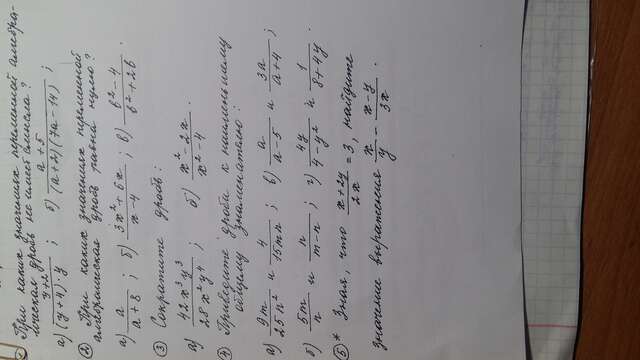 ① При каких значениях переменной алгебра-
ическая дробь не имеет смысла?
а) (y+2)/((y+4)·y) ; б) (a+5)/((a+2)(7a-14)) ;
② При каких значениях переменной
алгебраическая дробь равна нулю?
а) a/(a+8) ; б) (3x²+6x)/(x-4) ; в) (b²-4)/(b²+2b) .
③ Сократите дробь:
а) (42x³y³)/(28x²y⁴) ; б) (x²-2x)/(x²-4) .
④ Приведите дроби к наименьшему
общему знаменателю:
а) 9m/(25n²) и 4/(15mn) ; в) a/(a-5) и 3a/(a+4) ;
б) 5m/n и n/(m-n) ; г) 4y/(4-y²) и 1/(8+4y) .
⑤* Зная, что (x+2y)/(2x) = 3, найдите
значение выражения x/y - (x-y)/(3x) .